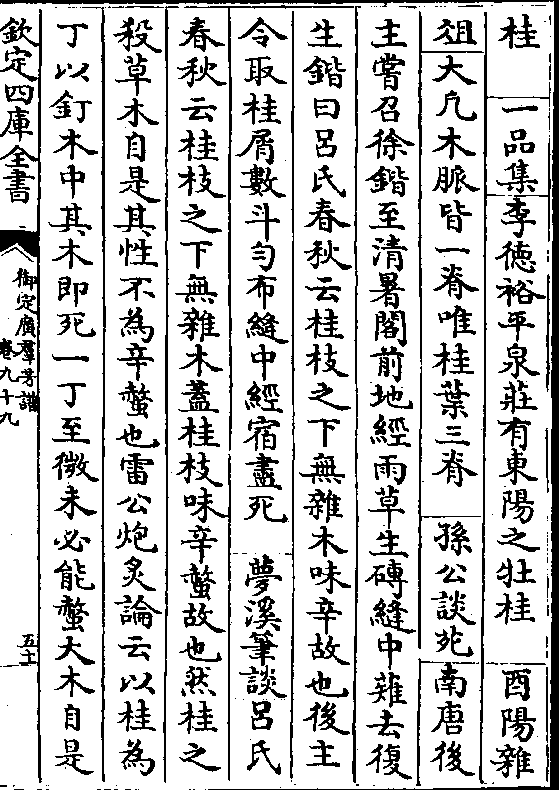 桂　一品集李德裕平泉莊有東陽之牡桂　酉陽雜
俎大凡木脈皆一脊唯桂葉三脊　孫公談苑南唐後
主嘗召徐鍇至清暑閣前地經雨草生磚縫中薙去復
生鍇曰呂氏春秋云桂枝之下無雜木味辛故也後主
令取桂屑數斗勻布縫中經宿盡死　夢溪筆談呂氏
春秋云桂枝之下無雜木蓋桂枝味辛螫故也然桂之
殺草木自是其性不為辛螫也雷公炮炙論云以桂為
丁以釘木中其木即死一丁至微未必能螫大木自是
欽定四庫全書
御定廣羣芳譜
卷九十九
五十